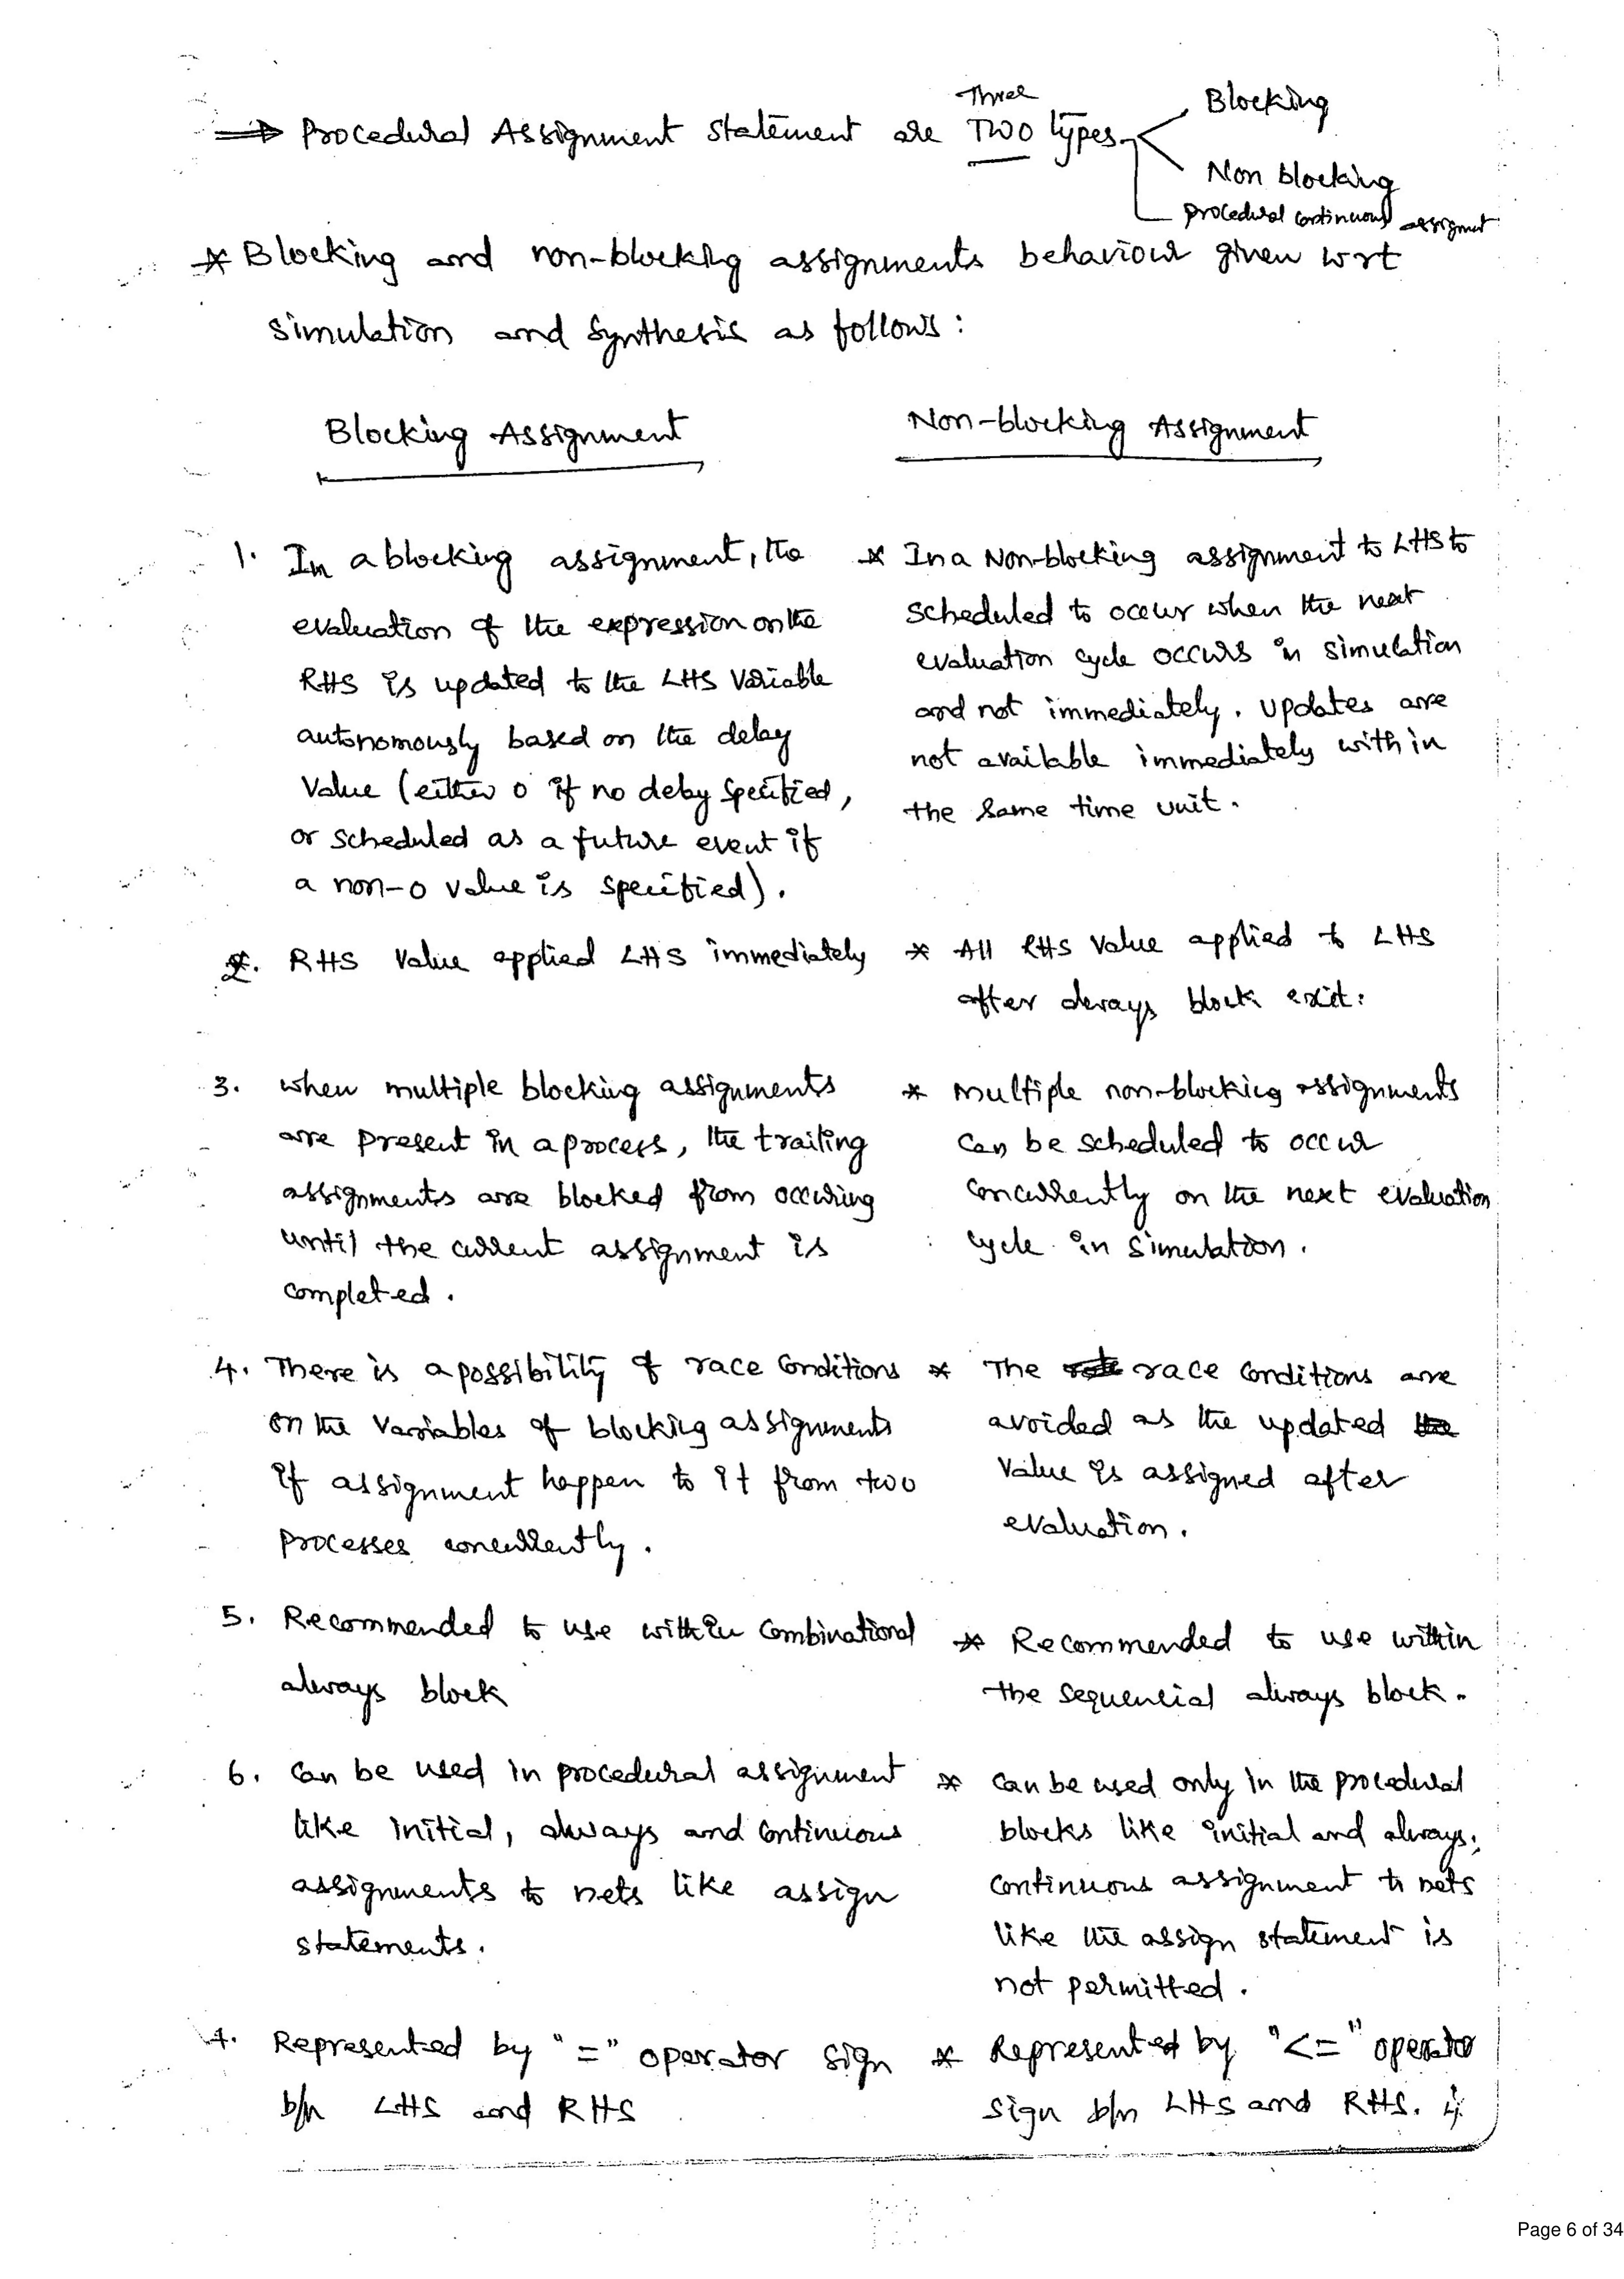 Three
⇒ Procedural Assignment Statement are TWO types.
Blocking
Non blocking
procedural continuous assignment
* Blocking and non-blocking assignments behaviour given wrt
simulation and synthesis as follows :
Blocking Assignment
Non-blocking Assignment
1. In a blocking assignment, the
evaluation of the expression on the
RHS is updated to the LHS Variable
autonomously based on the delay
Value (either 0 if no delay specified,
or scheduled as a future event if
a non-0 value is specified).
* In a Non-blocking assignment to LHS to
scheduled to occur when the next
evaluation cycle occurs in simulation
and not immediately. updates are
not available immediately within
the same time unit.
2. RHS Value applied LHS immediately
* All RHS Value applied to LHS
after always block exit.
3. when multiple blocking assignments
are present in a process, the trailing
assignments are blocked from occuring
until the current assignment is
completed.
* Multiple non-blocking assignments
can be scheduled to occur
concurrently on the next evaluation
cycle in simulation.
4. There is a possibility of race conditions
on the variables of blocking assignments
if assignment happen to it from two
processes concurrently.
* The race conditions are
avoided as the updated
value is assigned after
evaluation.
5. Recommended to use within combinational
always block
* Recommended to use within
the sequencial always block.
6. Can be used in procedural assignment
like initial, always and continuous
assignments to nets like assign
statements.
* can be used only in the procedural
blocks like initial and always;
continuous assignment to nets
like the assign statement is
not permitted.
7. Represented by "=" operator sign
b/n LHS and RHS
* Represented by "<=" operator
sign b/n LHS and RHS.
Page 6 of 34